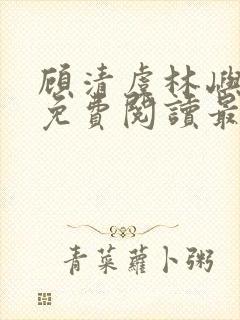 顾清虔林屿
免費閱讀最
青菜蘿卜粥